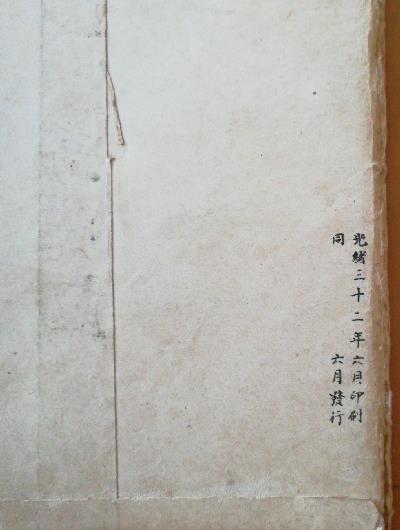 光緒三十二年六月印刷
同　　　　　六月發行